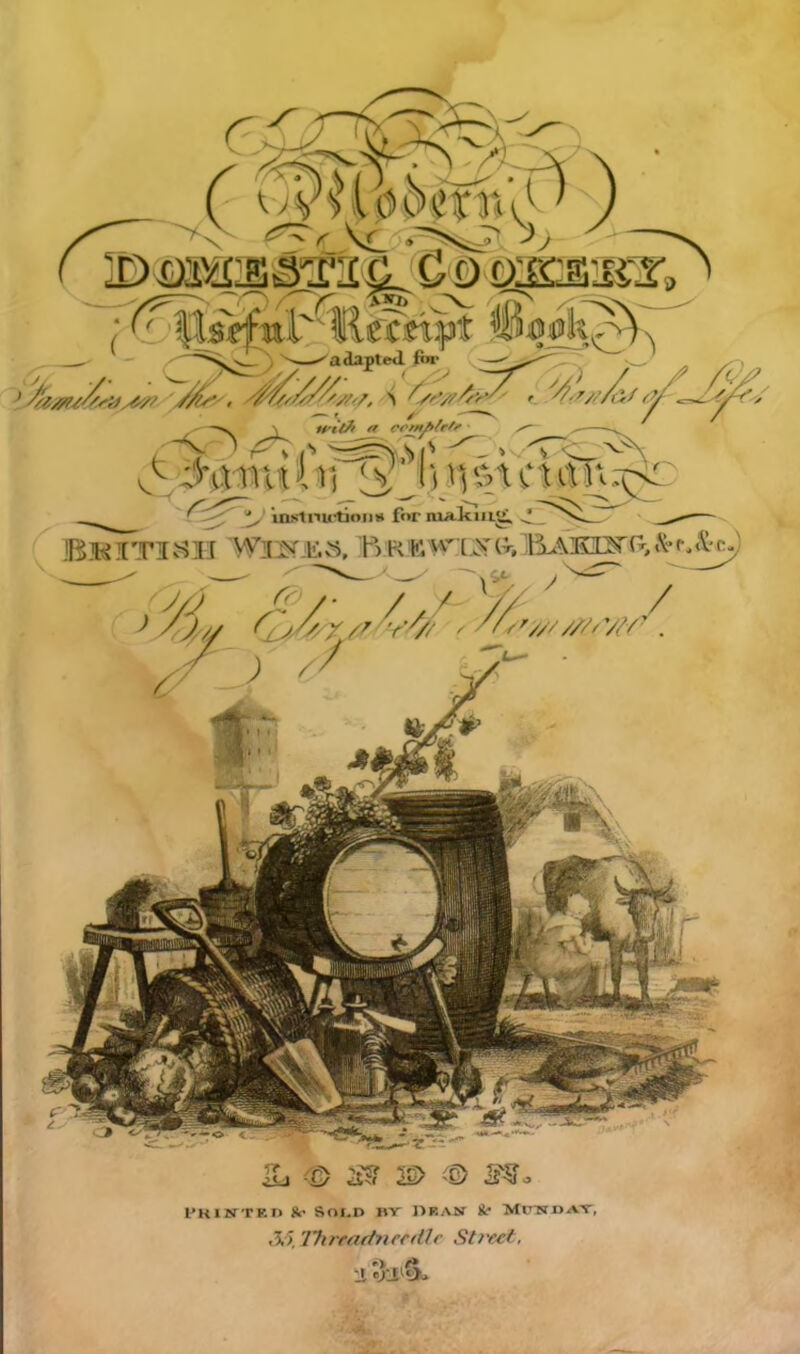 Modern
DOMESTIC COOKERY,
AND
Useful Receipt Book
adapted for
Families in the Middling & Genteel Ranks of Life,
with a complete
Family Physician
instructions for making
BRITISH WINES, BREWING, BAKING, &c. &c.
By Elizabeth Hammond.
LONDON.
PRINTED & SOLD BY DEAN & MUNDAY,
35, Threadneedle Street,